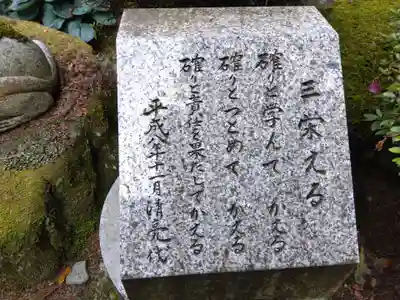 三栄える
確りと学んでかえる
確りとつとめてかえる
確りと責任を果たしてかえる
平成八年十一月清亮代